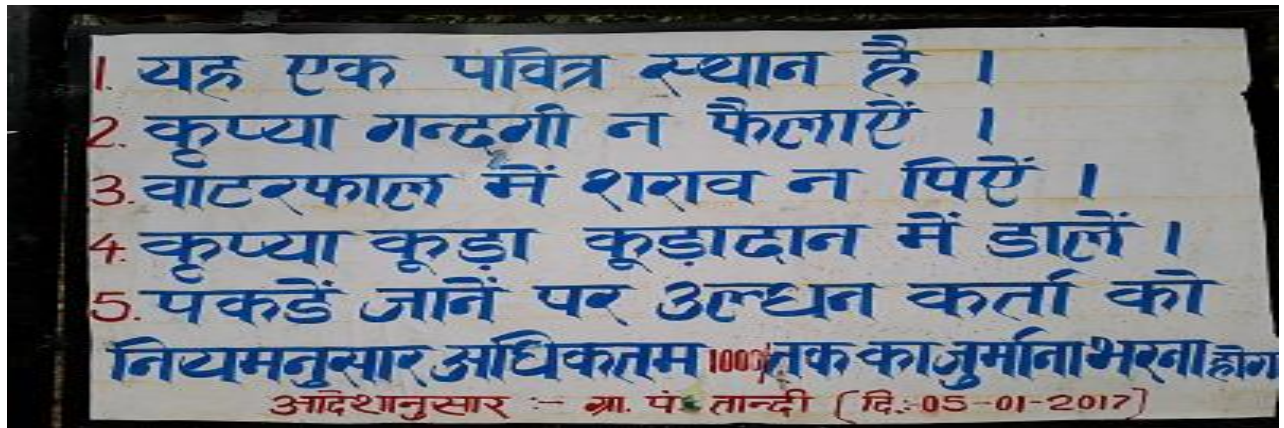 1. यह एक पवित्र स्थान है ।
2. कृप्या गन्दगी न फैलाऐं ।
3. वाटरफाल में शराव न पिऐं ।
4. कृप्या कूड़ा कूड़ादान में डालें ।
5. पकडें जानें पर उल्धन कर्ता को
नियमनुसार अधिकतम 1000 तक का जुर्माना भरना होग
आदेशानुसार :- ग्रा. पं. तान्दी (दि.:-05-01-2017)